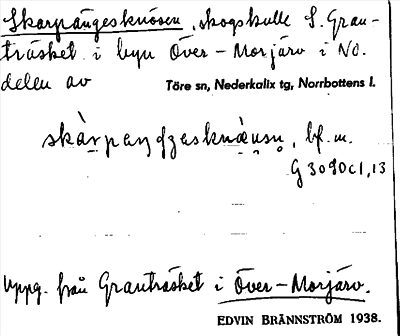 Skarpängesknösen, skogskulle S. Gran-
träsket i byn Över-Morjärv i NO.
delen av Töre sn, Nederkalix tg, Norrbottens l.
bf. m.
G3090c1,13
Uppg. från Granträsket i Över-Morjärv.
EDVIN BRÄNNSTRÖM 1938.